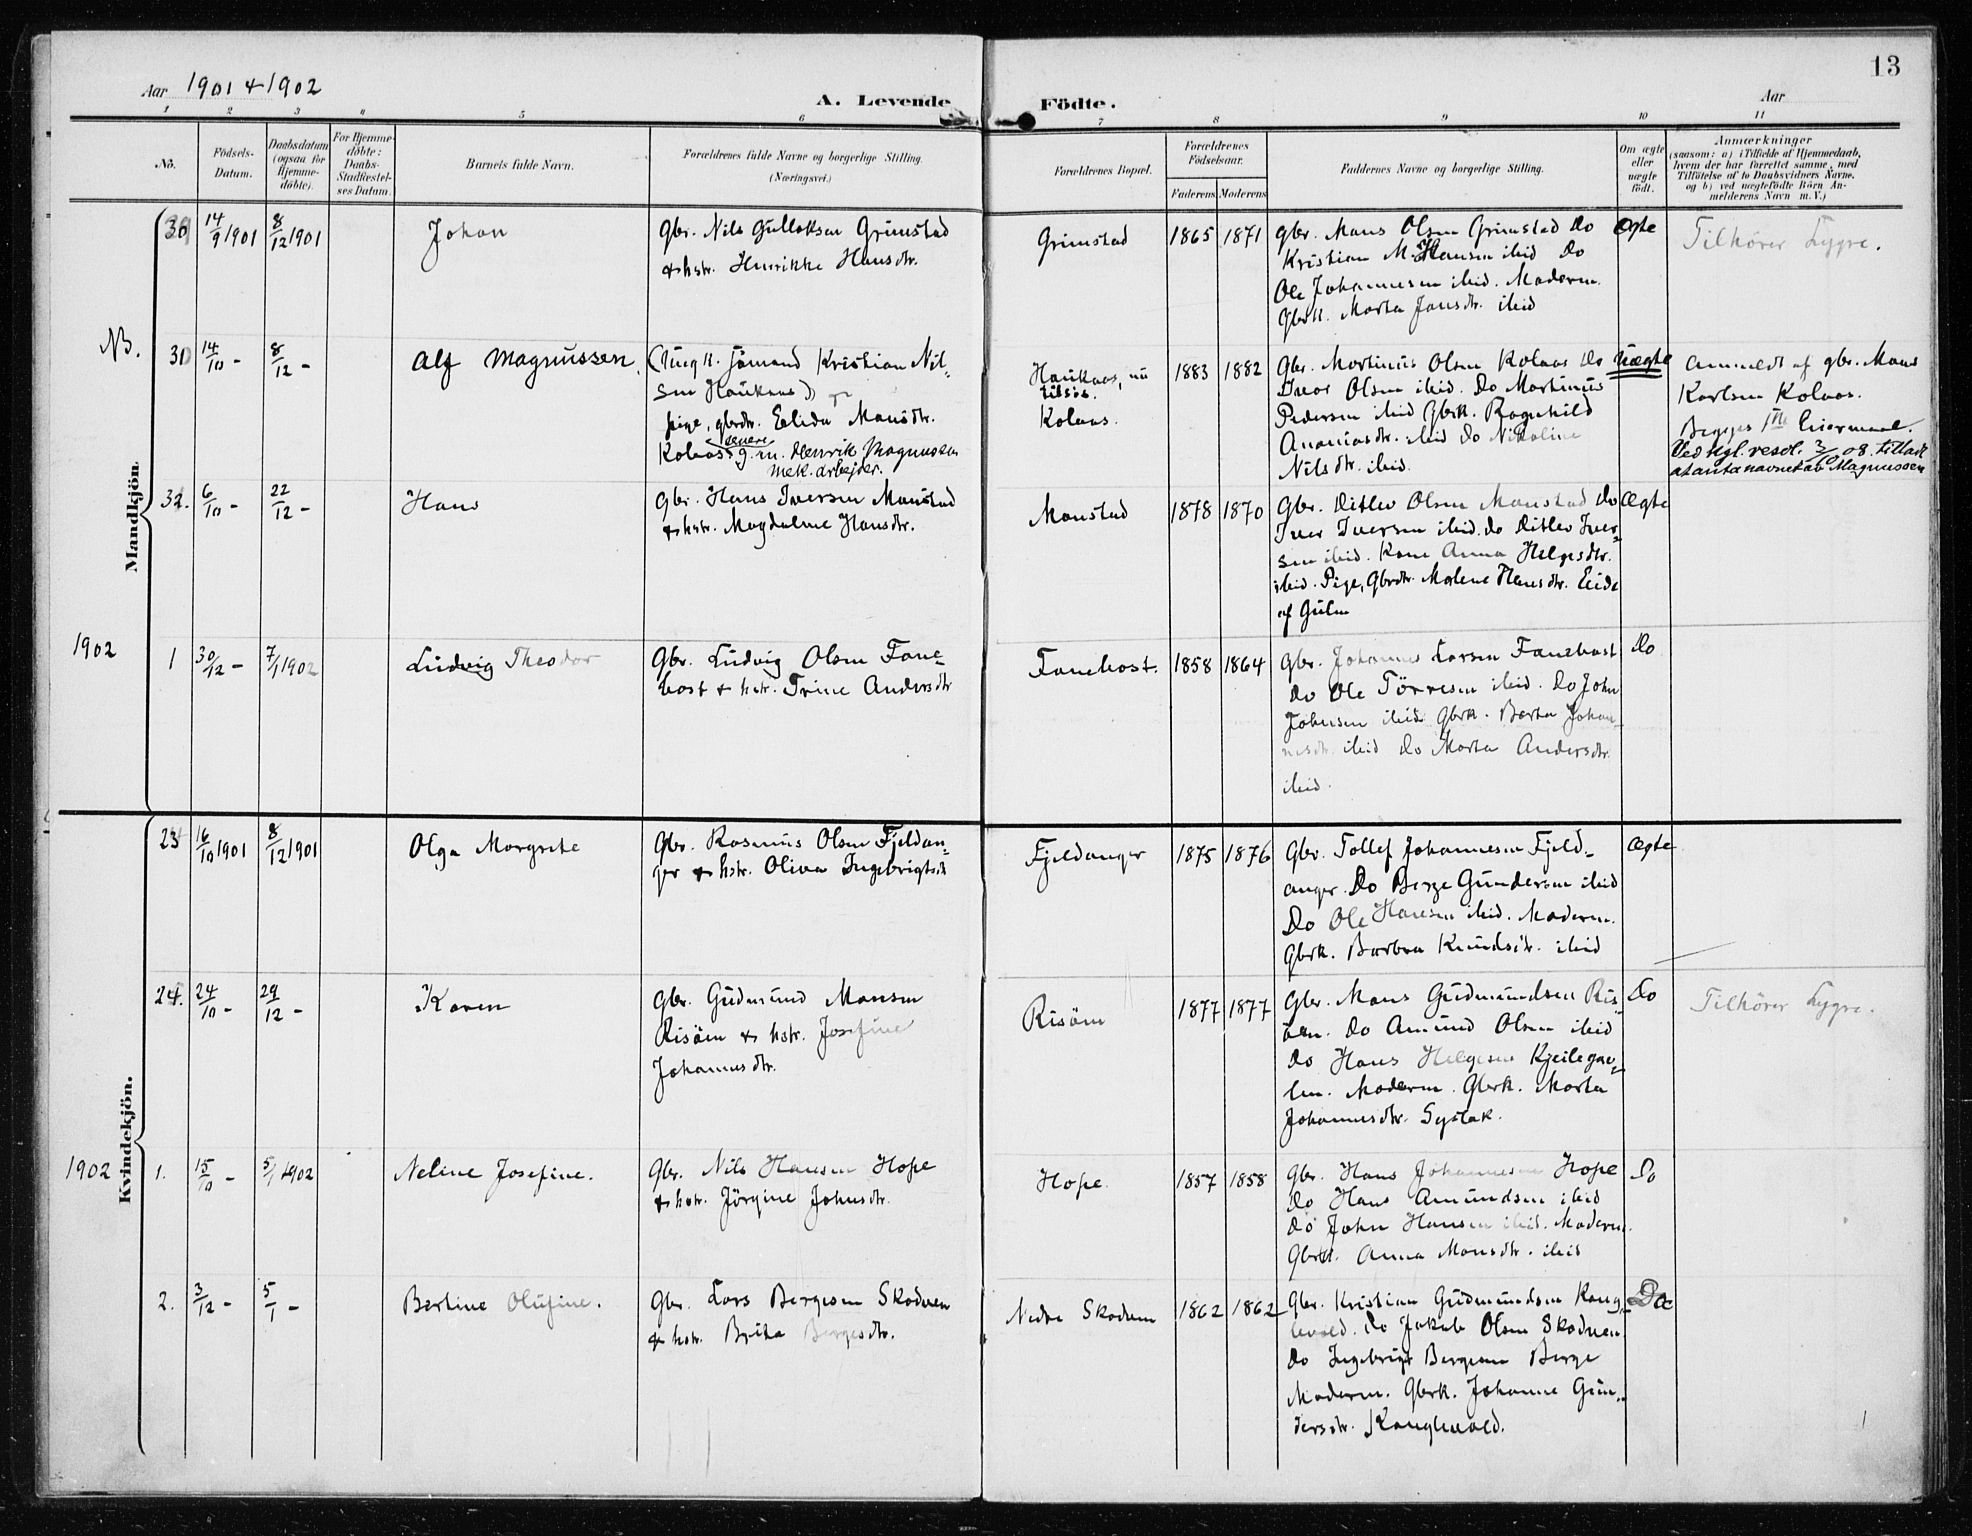 13
Aar 1901 & 1902
A. Levende Födte.
Aar
1 2 3 4 5 6 7 8 9 10 11
No.
Födsels-
Datum.
Daabsdatum
(ogsaa for
Hjemme-
döbte).
For Hjemme-
döbte:
Daabs-
Stadfæstel-
ses Datum.
Barnets fulde Navn.
Forældrenes fulde Navne og borgerlige Stilling.
(Næringsvei.)
Forældrenes Bopæl.
Forældrenes
Födselsaar.
Faderens Moderens
Faddernes Navne og borgerlige Stilling.
Om ægte
eller
uægte
födt.
Anmærkninger
(saasom: a) i Tilfælde af Hjemmedaab,
hvem der har forrettet samme, med
Tilföielse af to Daabsvidners Navne.
og b) ved uægtefödte Börn An-
melderens Navn m. V.)
Mandkjön.
30 14/9 1901 8/12 1901
Johan
Gbr. Nils Gulloksen Grimstad
& hstr. Henrikke Hansdtr.
Grimstad
1865 1871
Gbr. Mons Olsen Grimstad Do
Kristian M. Hansen ibid Do
Ole Johannesen ibid. Moderen.
Gbrk. Marta Jonsdtr. ibid
Ægte
Tilhører Lygre.
NB.
31 14/10 - 8/12 -
Alf Magnussen.
(Ungk. sömand Kristian Nil-
sen Haukaas)
pige, gbrdtr. Elida Monsdtr.
Kolaas senere g. m. Henrik Magnussen
mek. arbejder.
Haukaas, nu
tilsös.
Kolaas.
1883 1882
Gbr. Martinus Olsen Kolaas Do
Ivar Olsen ibid. Do Martinus
Pedersen ibid Gbrk. Ragnhild
Ananiasdtr. ibid Do Nikoline
Nilsdtr. ibid.
Uægte
Anmeldt af gbr. Mons
Karlsen Kolaas.
Begges 1ste leiermaal.
Ved kgl. resol. 3/10 08. tilladt
at anta navnet Magnussen
32. 6/10 - 22/12 -
Hans
Gbr. Hans Iversen Monstad
& hstr. Magdalene Hansdtr.
Monstad
1878 1870
Gbr. Ditlev Olsen Monstad Do
Iver Iversen ibid. do Ditlev Iver-
sen ibid. Kone Anna Helgesdtr.
ibid. Pige, Gbrdtr. Malene Hansdtr. Eide
af Gulen
Ægte
1902
1 30/12 - 7/1 1902
Ludvig Theodor
Gbr. Ludvig Olsen Fane-
bost & hstr. Trine Andersdtr
Fanebost.
1858 1864
Gbr. Johannes Larsen Fanebost
Do Ole Törresen ibid. Do John
Johnsen ibid Gbrk. Berta Johan-
nesdtr. ibid Do Marta Andersdtr.
ibid.
Do
Kvindekjön.
23 16/10 1901 8/12 1901
Olga Margrete
Gbr. Rasmus Olsen Fjeldan-
ger & hstr. Oliva Ingebrigtsdt
Fjeldanger
1875 1876
Gbr. Tollef Johannesen Fjeld-
anger. Do Berge Gundersen ibid
Do Ole Hansen ibid. Moderen.
Gbrk. Barbra Knudsdtr. ibid
Ægte
24. 24/10 - 29/12 -
Karen
Gbr. Gudmund Monsen
Risöen & hstr. Josefine
Johannesdtr.
Risöen
1877 1877
Gbr. Mons Gudmundsen Ris-
öen. Do Amund Olsen ibid
Do Hans Helgesen Kjeilegav-
len. Moderen. Gbrk. Marta
Johannesdtr. Syslak.
Do
Tilhörer Lygre.
1902
1. 15/10 - 5/1 1902
Neline Josefine.
Gbr. Nils Hansen Hope
& hstr. Jörgine Johnsdtr.
Hope.
1857 1858
Gbr. Hans Johannesen Hope
Do Hans Amundsen ibid
Do John Hansen ibid. Moderen.
Gbrk. Anna Monsdtr. ibid
Do
2. 3/12 - 5/1 -
Bertine Olufine.
Gbr. Lars Bergesen Skodven
& hstr. Brita Bergesdtr.
Nedre Skodven
1862 1862
Gbr. Kristian Gudmundsen Kong-
levold. Do Jakob Olsen Skodven.
Do Ingebrigt Bergesen Berge
Moderen. Gbrk. Johanne Gun-
dersdtr. Konglevold.
Do